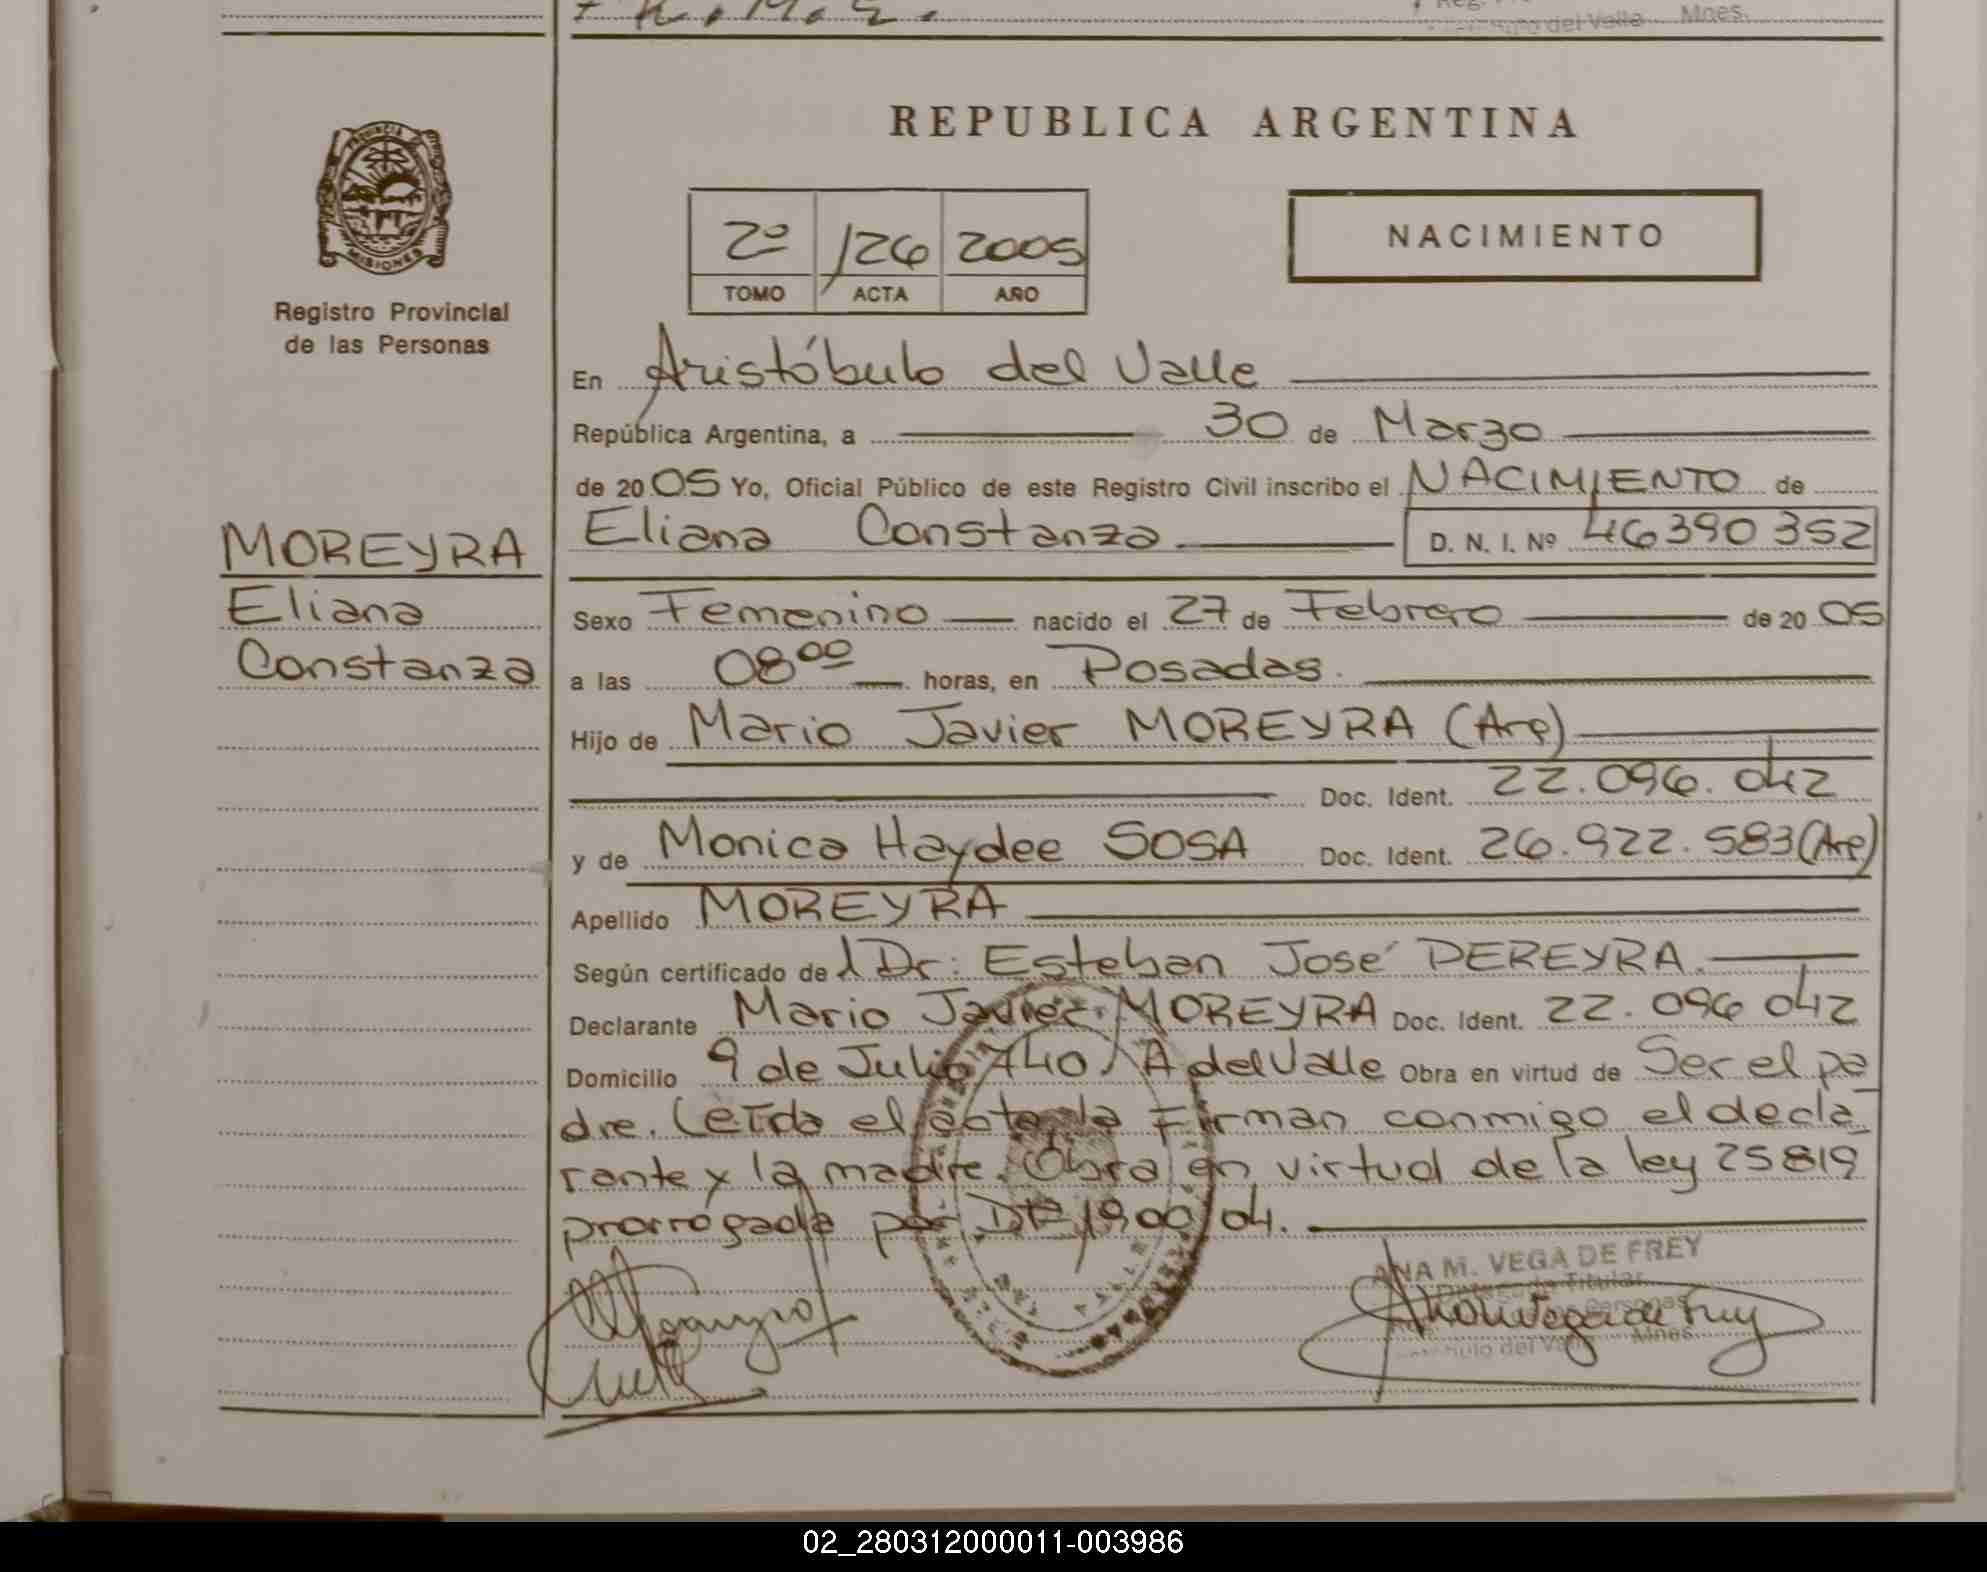 REPUBLICA ARGENTINA
PROVINCIA
MISIONES
Registro Provincial
de las Personas
2º 126 2005
TOMO ACTA AÑO
NACIMIENTO
En Aristóbulo del Valle
República Argentina, a 30 de Marzo
de 2005 Yo, Oficial Público de este Registro Civil inscribo el NACIMIENTO de
Eliana Constanza D. N. I. Nº 46390352
MOREYRA
Eliana
Constanza
Sexo Femenino nacido el 27 de Febrero de 2005
a las 08⁰⁰ horas, en Posadas.
Hijo de Mario Javier MOREYRA (Arg)
Doc. Ident. 22.096.042
y de Monica Haydee SOSA Doc. Ident. 26.922.583 (Arg)
Apellido MOREYRA
Según certificado de l Dr: Esteban José PEREYRA.
Declarante Mario Javier MOREYRA Doc. Ident. 22.096 042
Domicilio 9 de Julio 740 A del Valle Obra en virtud de Ser el pa
dre. Leída el acta la Firman conmigo el decla
rante y la madre. Obra en virtud de la ley 25819
prorrogada por 1900/04.
ANA M. VEGA DE FREY
Titular
02_280312000011-003986